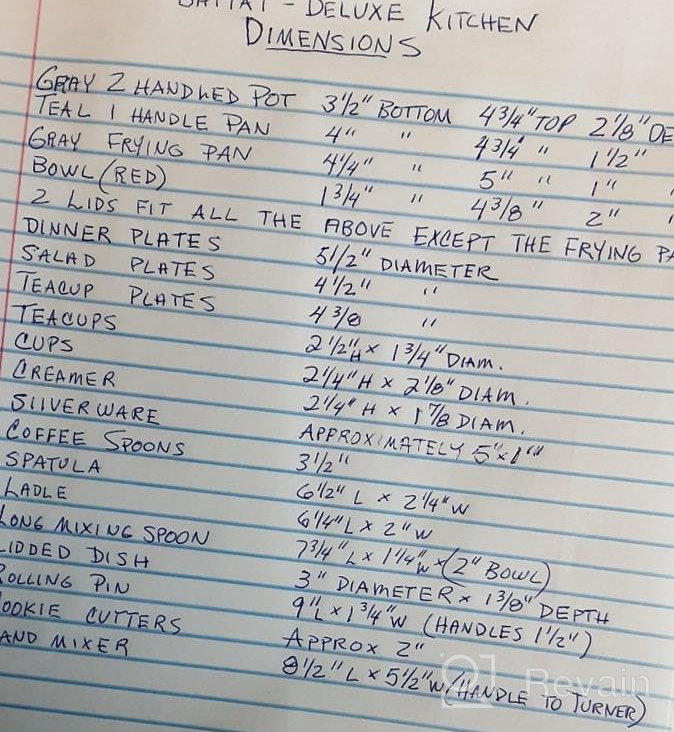 BATTAT - DELUXE KITCHEN
DIMENSIONS
GRAY 2 HANDLED POT 3 1/2" BOTTOM 4 3/4" TOP 2 1/8" DE
TEAL 1 HANDLE PAN 4" " 4 3/4 " 1 1/2"
GRAY FRYING PAN 4 1/4" " 5" " 1" "
BOWL (RED) 1 3/4" " 4 3/8" 2" "
2 LIDS FIT ALL THE ABOVE EXCEPT THE FRYING PA
DINNER PLATES 5 1/2" DIAMETER
SALAD PLATES 4 1/2" "
TEACUP PLATES 4 3/8 "
TEACUPS 2 1/2" H x 1 3/4" DIAM.
CUPS 2 1/4" H x 2 1/8" DIAM.
CREAMER 2 1/4" H x 1 7/8 DIAM.
SIIVERWARE APPROXIMATELY 5" x 1"
COFFEE SPOONS 3 1/2"
SPATULA 6 1/2" L x 2 1/4" W
LADLE 6 1/4" L x 2" W
LONG MIXING SPOON 7 3/4" L x 1 1/4" W x (2" BOWL)
LIDDED DISH 3" DIAMETER x 1 3/8" DEPTH
ROLLING PIN 9" L x 1 3/4" W (HANDLES 1 1/2")
OOKIE CUTTERS APPROX 2"
AND MIXER 8 1/2" L x 5 1/2" W (HANDLE TO TURNER)
Revain